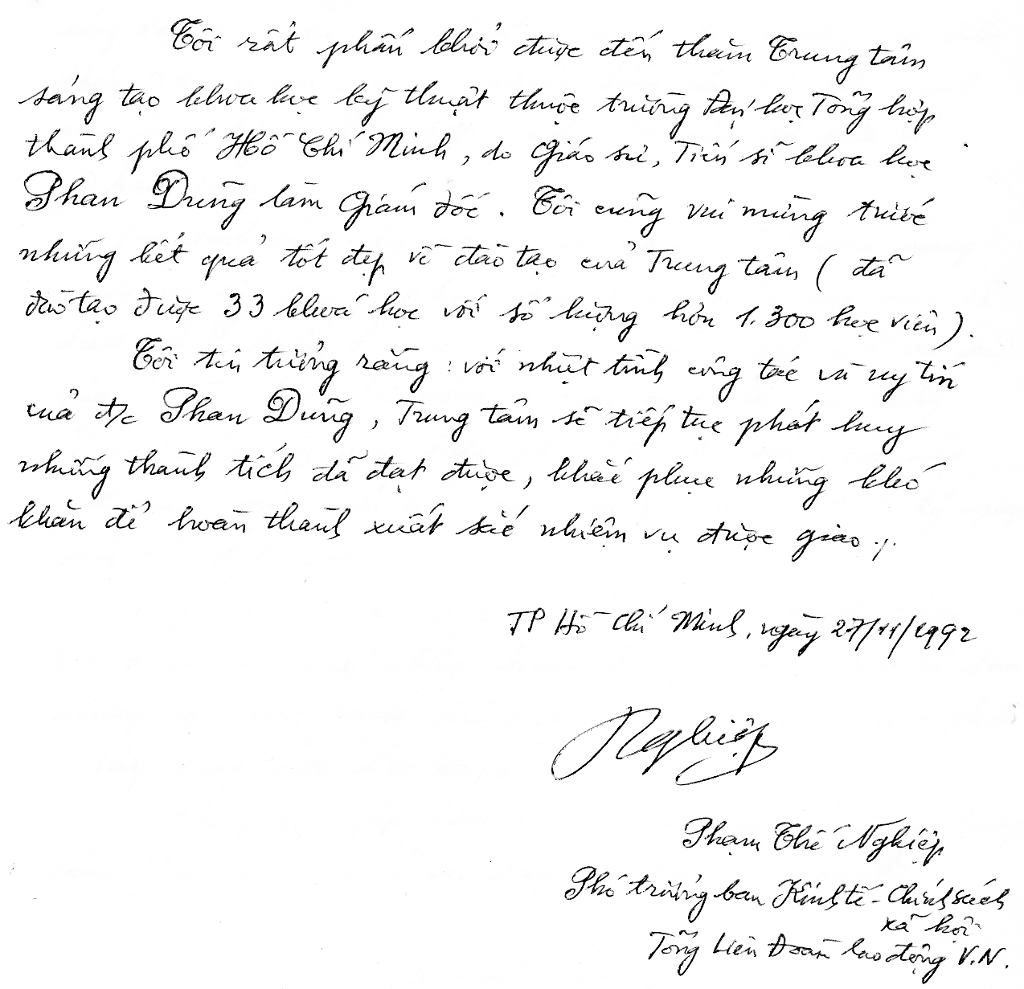 Tôi rất phấn khởi được đến thăm Trung tâm
sáng tạo khoa học kỹ thuật thuộc trường Đại học Tổng hợp
thành phố Hồ Chí Minh, do Giáo sư, Tiến sĩ khoa học
Phan Dũng làm Giám đốc. Tôi cũng vui mừng trước
những kết quả tốt đẹp về đào tạo của Trung tâm (đã
đào tạo được 33 khoá học với số lượng hơn 1.300 học viên).
Tôi tin tưởng rằng: với nhiệt tình công tác và uy tín
của đ/c Phan Dũng, Trung tâm sẽ tiếp tục phát huy
những thành tích đã đạt được, khắc phục những khó
khăn để hoàn thành xuất sắc nhiệm vụ được giao./.
TP Hồ Chí Minh, ngày 27/11/1992
Nghiệp
Phạm Thế Nghiệp
Phó trưởng ban Kinh tế - Chính sách
xã hội
Tổng Liên Đoàn lao động V.N.